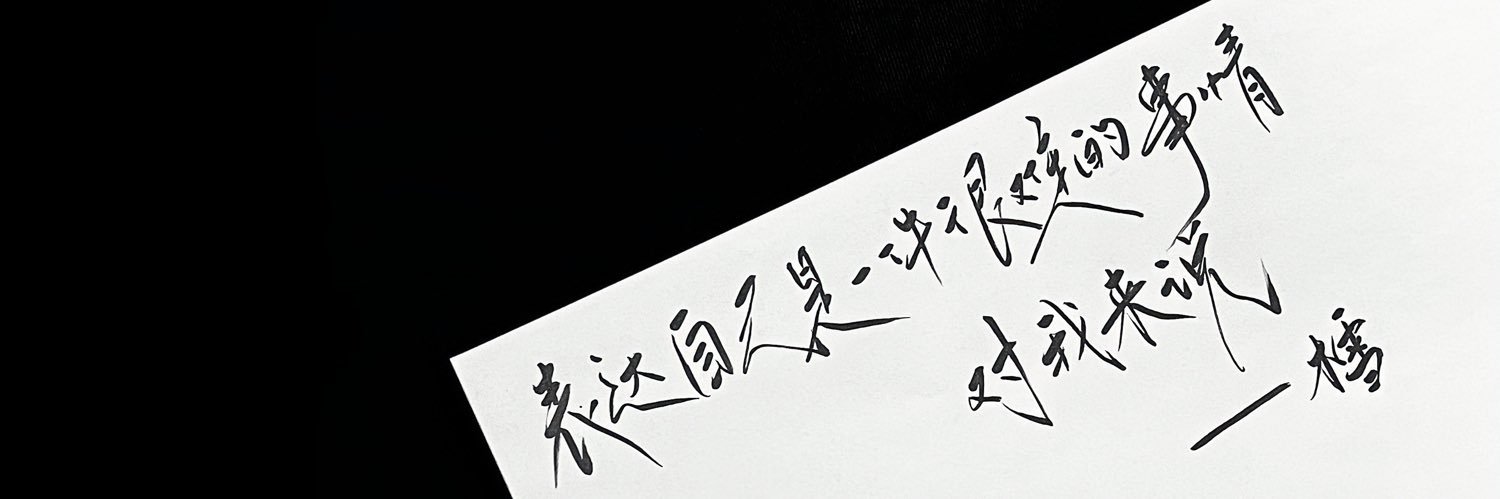 表达自己是一件很难的事情
对我来说
—橘